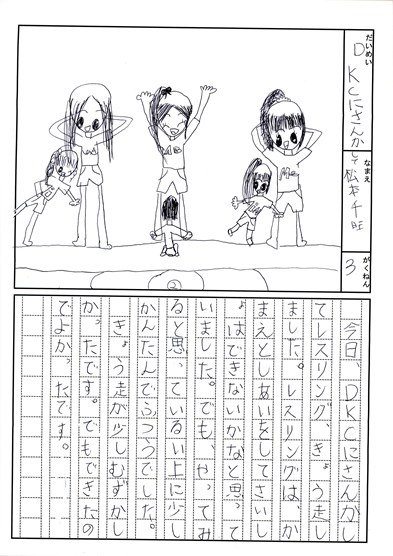 だいめい
DKCにさんかして
なまえ
松本千旺
がくねん
3
Me
Me
Me
②
今日、DKCにさんかし
てレスリング、きょう走し
ました。レスリングは、か
まえとしあいをしてさいし
ょはできないかなと思って
いました。でも、やってみ
ると思っているい上に少し
かんたんでふつうでした。
きょう走が少しむずかし
かったです。でもできたの
でよかったです。